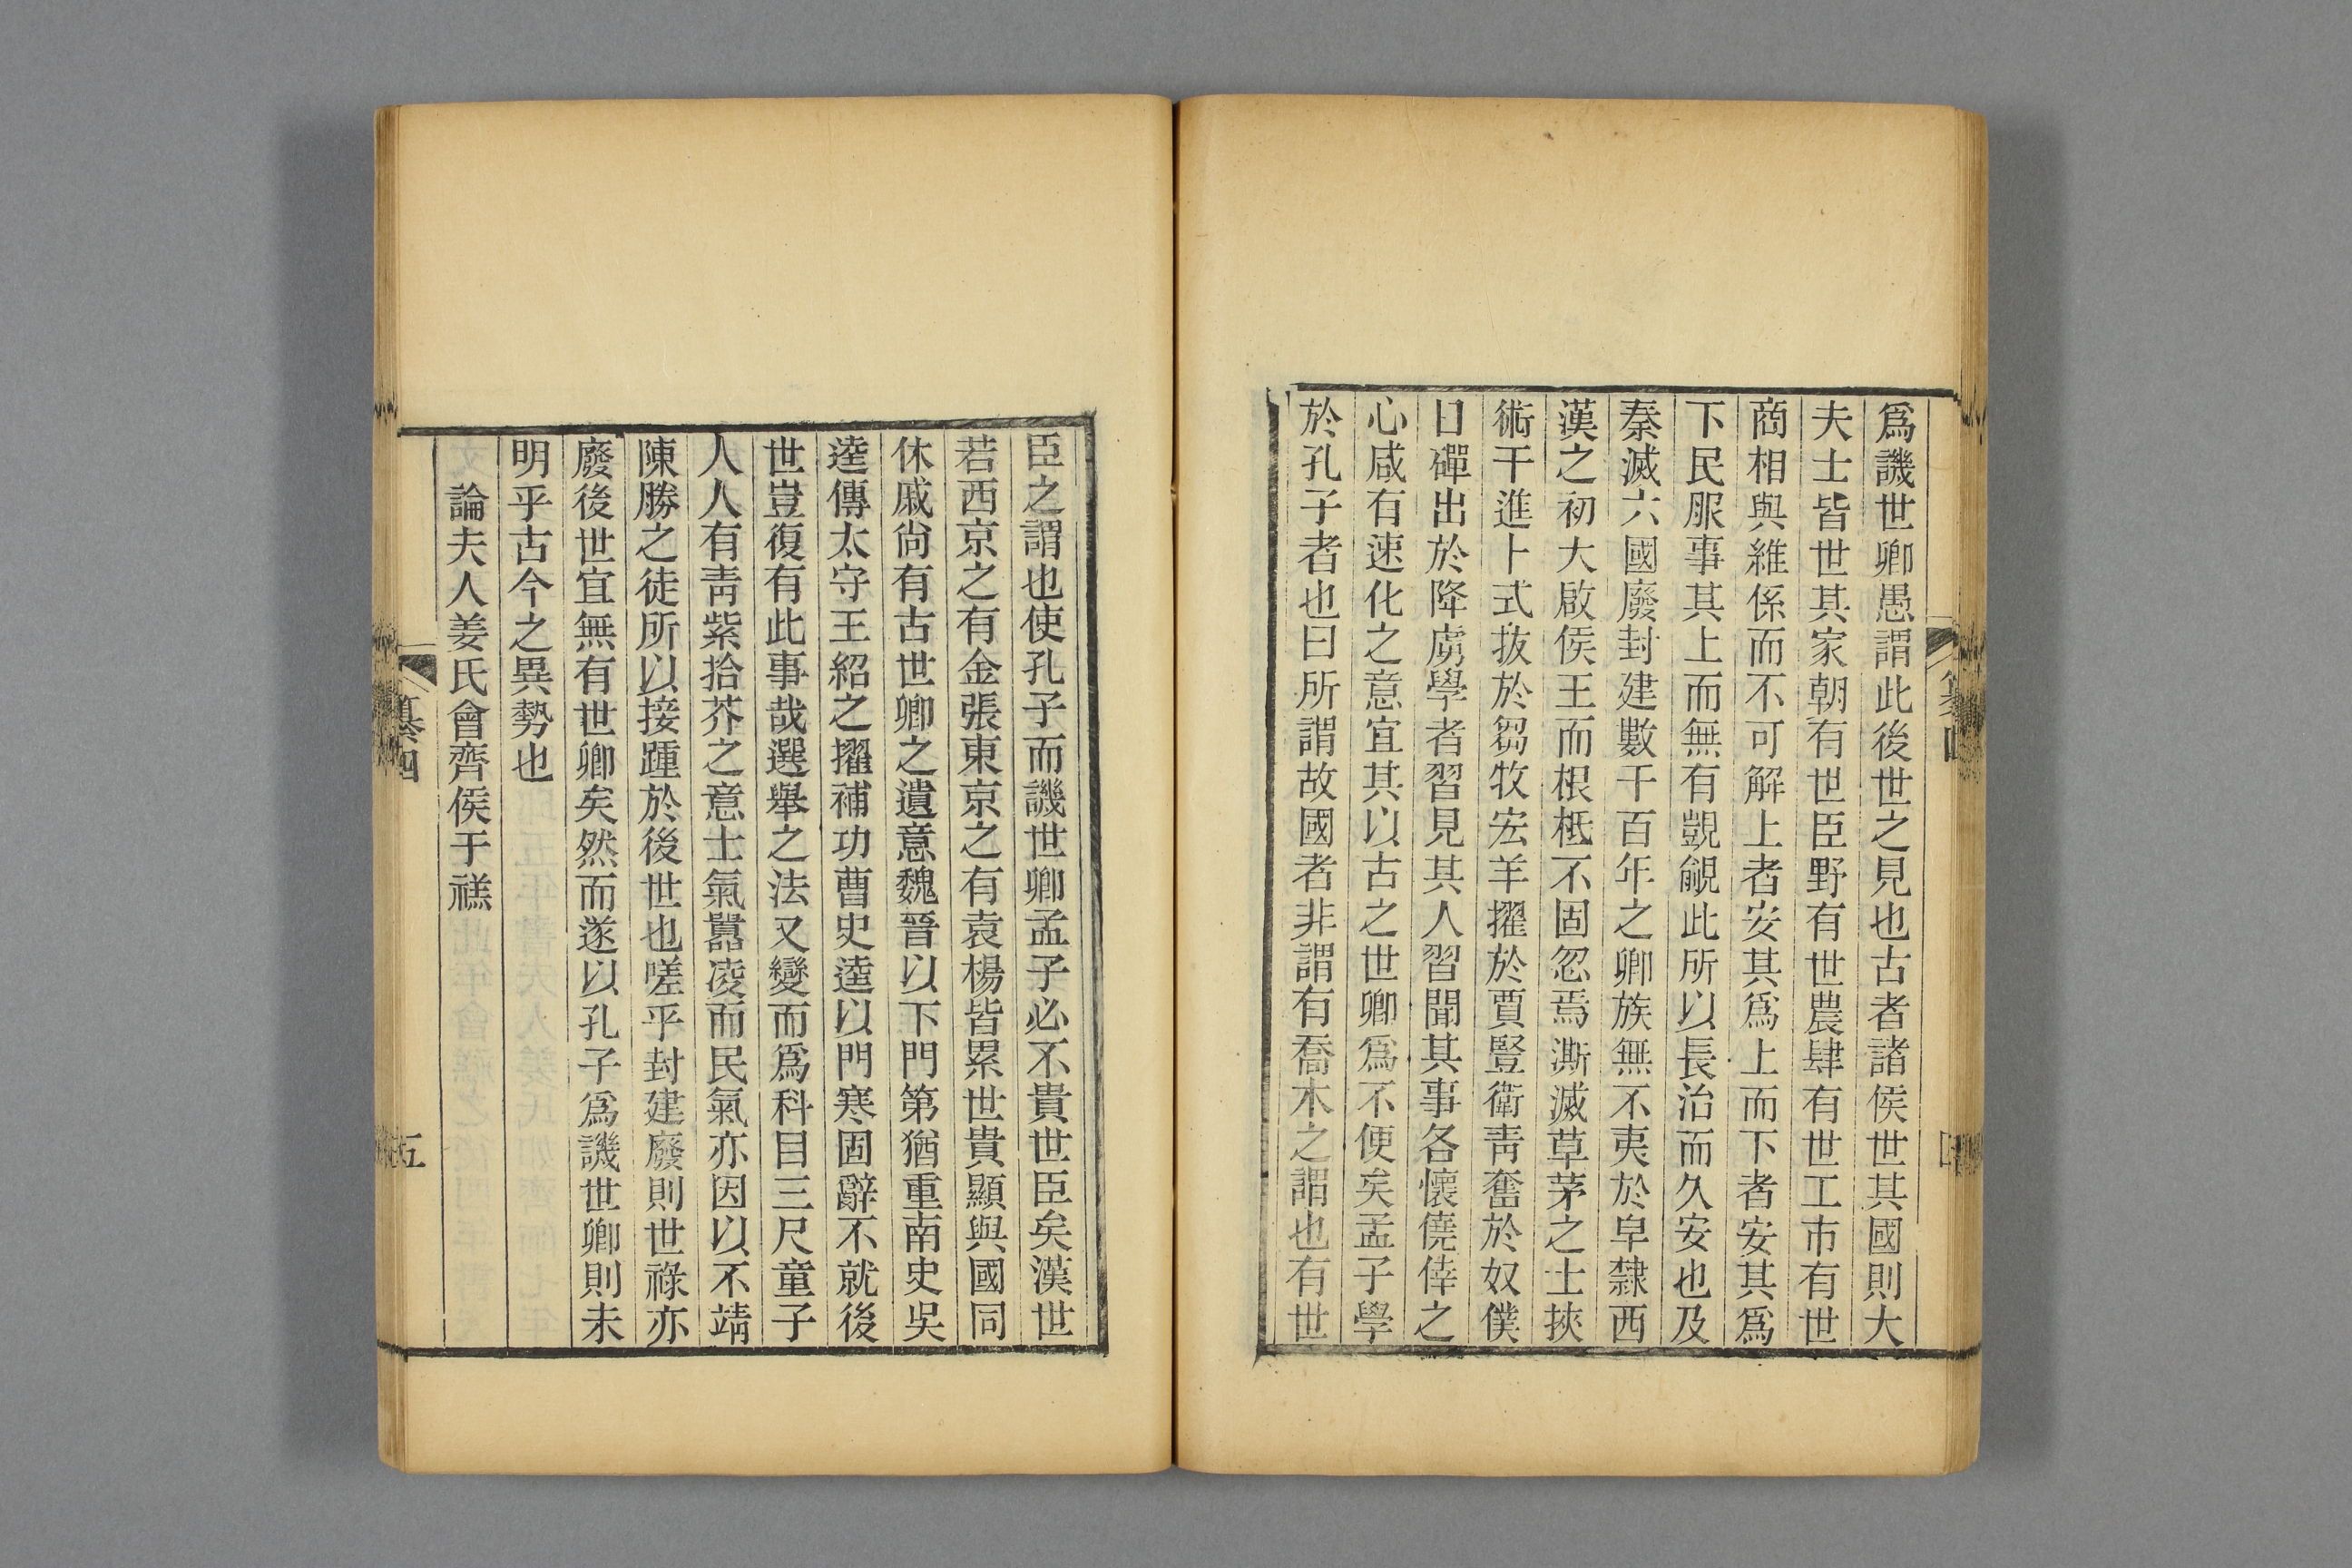 爲譏世卿愚謂此後世之見也古者諸侯世其國則大
夫士皆世其家朝有世臣野有世農肆有世工市有世
商相與維係而不可解上者安其爲上而下者安其爲
下民服事其上而無有覬覦此所以長治而久安也及
秦滅六國廢封建數千百年之卿族無不夷於皁隸西
漢之初大啟侯王而根柢不固忽焉澌滅草茅之士挾
術干進卜式拔於芻牧宏羊擢於賈豎衛靑奮於奴僕
日磾出於降虜學者習見其人習聞其事各懷僥倖之
心咸有速化之意宜其以古之世卿爲不便矣孟子學
於孔子者也曰所謂故國者非謂有喬木之謂也有世
臣之謂也使孔子而譏世卿孟子必不貴世臣矣漢世
若西京之有金張東京之有袁楊皆累世貴顯與國同
休戚尙有古世卿之遺意魏晉以下門第猶重南史吳
逵傳太守王紹之擢補功曹史逵以門寒固辭不就後
世豈復有此事哉選舉之法又變而爲科目三尺童子
人人有靑紫拾芥之意士氣囂凌而民氣亦因以不靖
陳勝之徒所以接踵於後世也嗟乎封建廢則世祿亦
廢後世宜無有世卿矣然而遂以孔子爲譏世卿則未
明乎古今之異勢也
論夫人姜氏會齊侯于禚
纂四
五